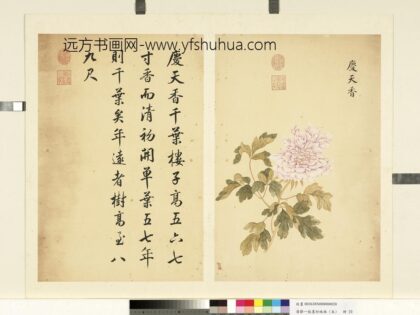 远方书画网-www.yfshuhua.com
慶天香
慶天香千葉樓子高五六七
寸香而清初開單葉五七年
則千葉矣年遠者樹高至八
九尺